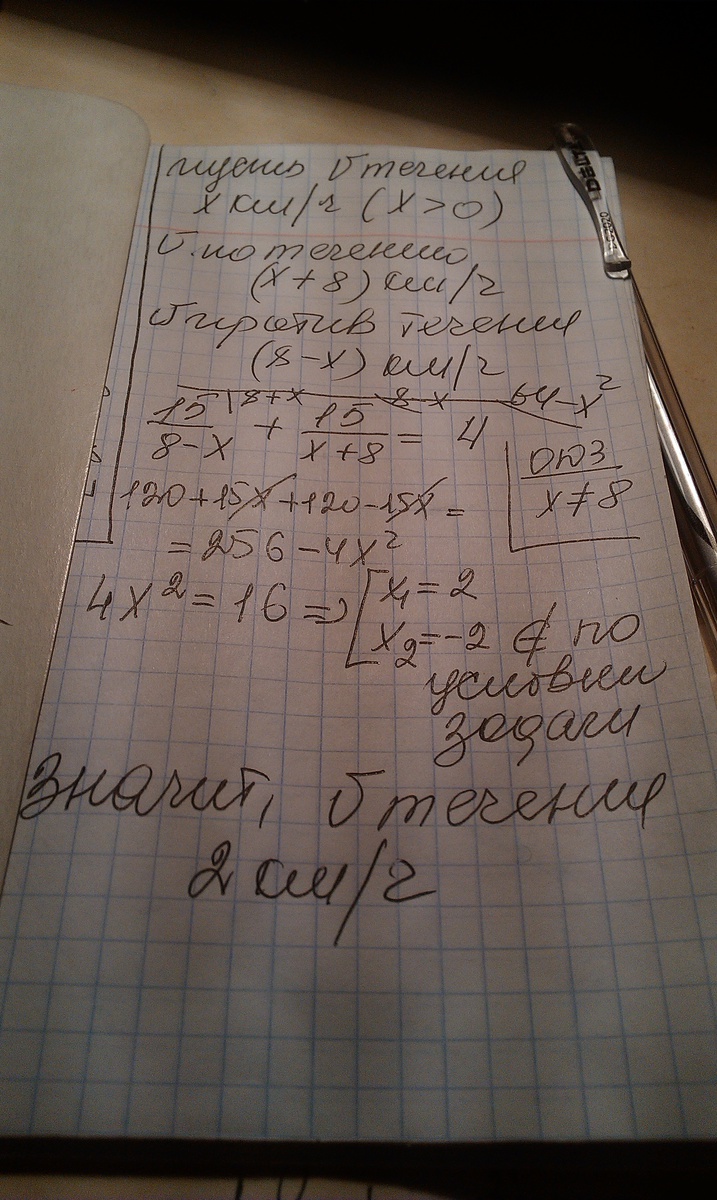 пусть v течения
x км/ч (x>0)
v по течению
(x+8) км/ч
v против течения
(8-x) км/ч
15/(8-x) \8+x + 15/(x+8) \8-x = 4 \64-x²
ОДЗ
x≠8
120+15x+120-15x=
=256-4x²
4x²=16 => [x₁=2
x₂=-2 ∉ по
условии
задачи
Значит, v течения
2 км/ч